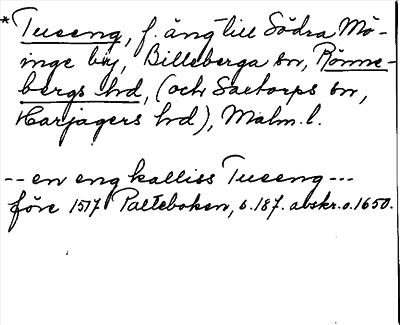 *Tuseng, f. äng till Södra Mö-
inge by, Billeberga sn, Rönne-
bergs hd, (och Saxtorps sn,
Harjagers hd), Malm. l.
-- en eng kalliss Tuseng ---
före 1517 Palteboken, s. 187. avskr. o. 1650.